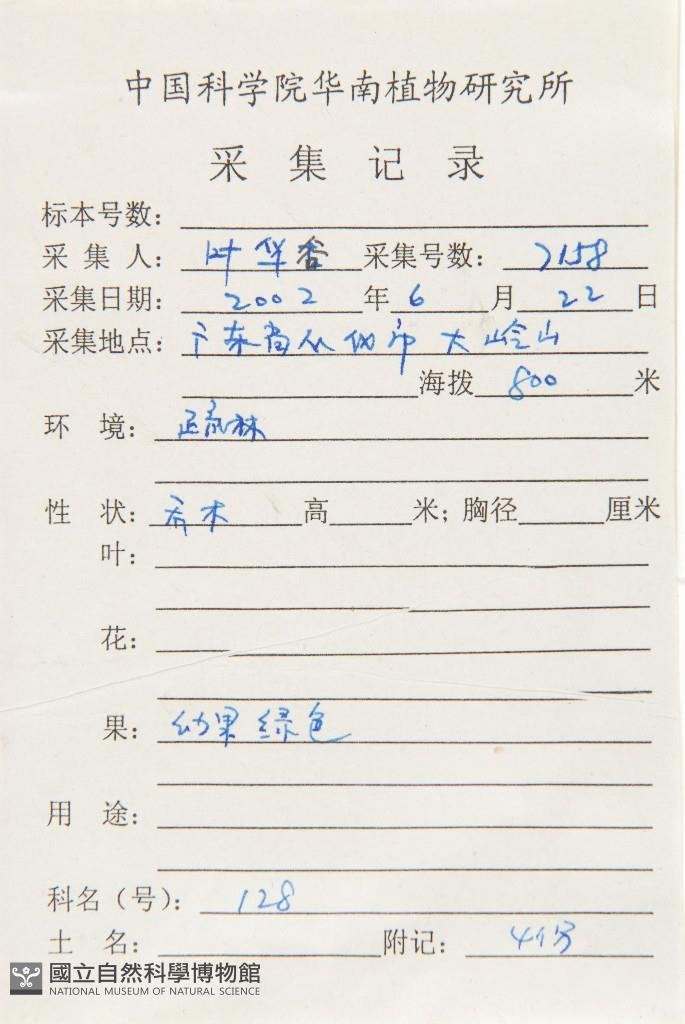 中国科学院华南植物研究所
采集记录
标本号数:
采集人: 叶华谷 采集号数: 7158
采集日期: 2002 年 6 月 22 日
采集地点: 广东省从化市 大岭山
海拨 800 米
环境: 疏林
性状: 乔木 高 米; 胸径 厘米
叶:
花:
果: 幼果绿色
用途:
科名(号): 128
土名: 附记: 4份
國立自然科學博物館
NATIONAL MUSEUM OF NATURAL SCIENCE